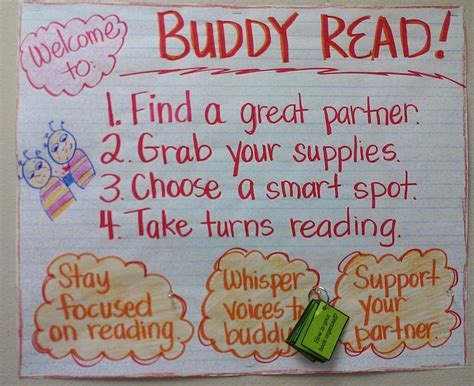 Welcome
to:
BUDDY READ!
1. Find a great partner.
2. Grab your supplies.
3. Choose a smart spot.
4. Take turns reading.
Stay
focused
on reading.
Whisper
voices
buddy
Support
your
partner.